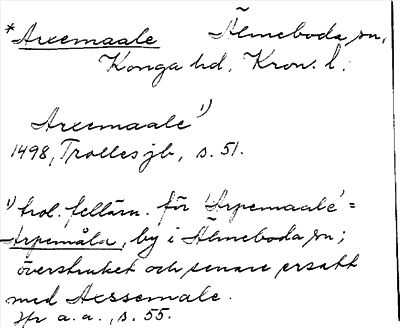 *Arxemaale Älmeboda sn,
Konga hd, Kron. l.
Arxemaale 1)
1498, Trolles jb, s. 51.
1) trol. felläsn. för 'Arpemaale' =
Arpemåla, by i Älmeboda sn;
överstruket och senare ersatt
med Axssemale.
Jfr a.a., s. 55.